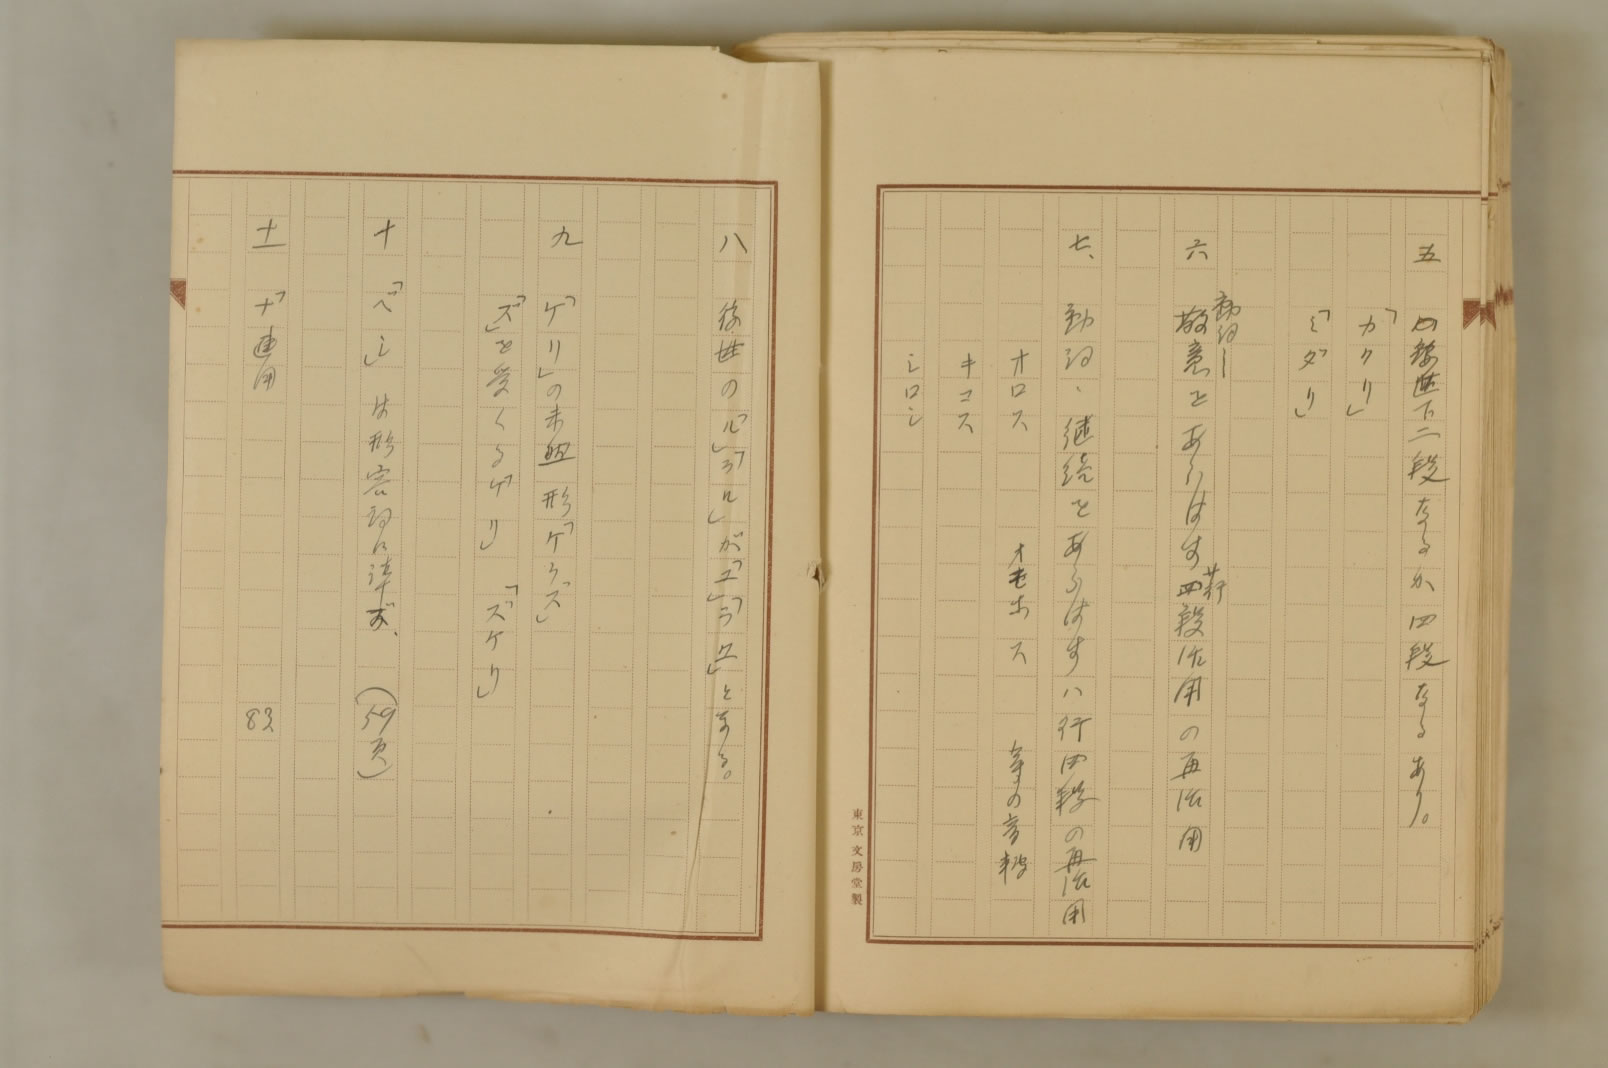 五 後世下二段なるか四段なるあり。
「カクリ」
「ミダリ」
六 動詞ノ敬意をあらはす サ行四段活用の再活用
七、動詞、継続をあらはすハ行四段の再活用
オロス オモホス 等の音轉
キコス
シロシ
東京文房堂製
八 後世の「ル」「ラル」が「ユ」「ラユ」となる。
九 「ケリ」の未然形「ケラズ」
「ズ」を受くる「ケリ」 「ズケリ」
十 「ベシ」は形容詞に準ず、 (59頁)
十一 「ナ」連用 83